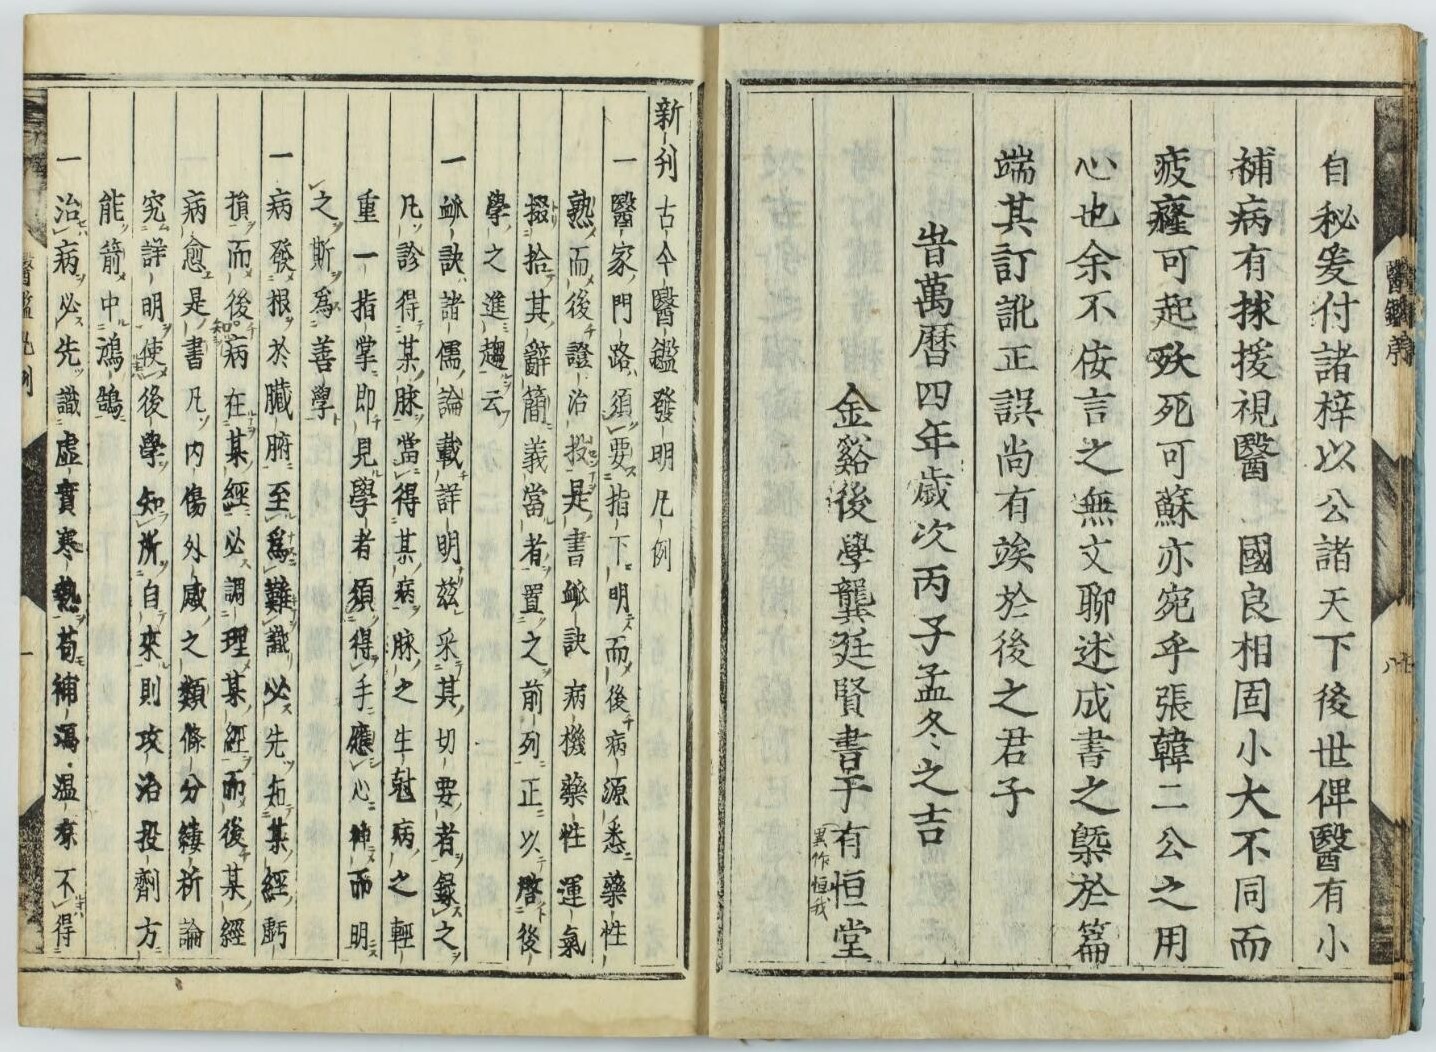 自秘爰付諸梓以公諸天下後世俾醫有小
補病有捄援視醫國良相固小大不同而
疲癃可起殀死可蘇亦宛乎張韓二公之用
心也余不佞言之無文聊述成書之槩於篇
端其訂訛正誤尚有竢於後之君子
旹萬曆四年歲次丙子孟冬之吉
金谿後學龔廷賢書于有恒堂
新刊古今醫鑑發明凡例
一醫家門路須要指下明而後病源悉藥性
熟而後證治投是書脉訣病機藥性運氣
掇拾其辭簡義當者置之前列正以啓後
學之進趨云
一脉訣諸儒論載詳明茲采其切要者録之
凡診得某脉當得某病脉之生尅病之輕
重一指掌即見學者須得手應心神而明
之斯爲善學
一病發根於臓腑至爲難識必先拓某經虧
損而後知病在某經必調理某經而後某經
病愈是書凡内傷外感之類條分縷析論
究詳明使後學知所自來則攻治投劑方
能箭中鴻鵠
一治病必先識虚實寒熱苟補瀉温凉不得
醫鑑序
醫鑑凡例
一